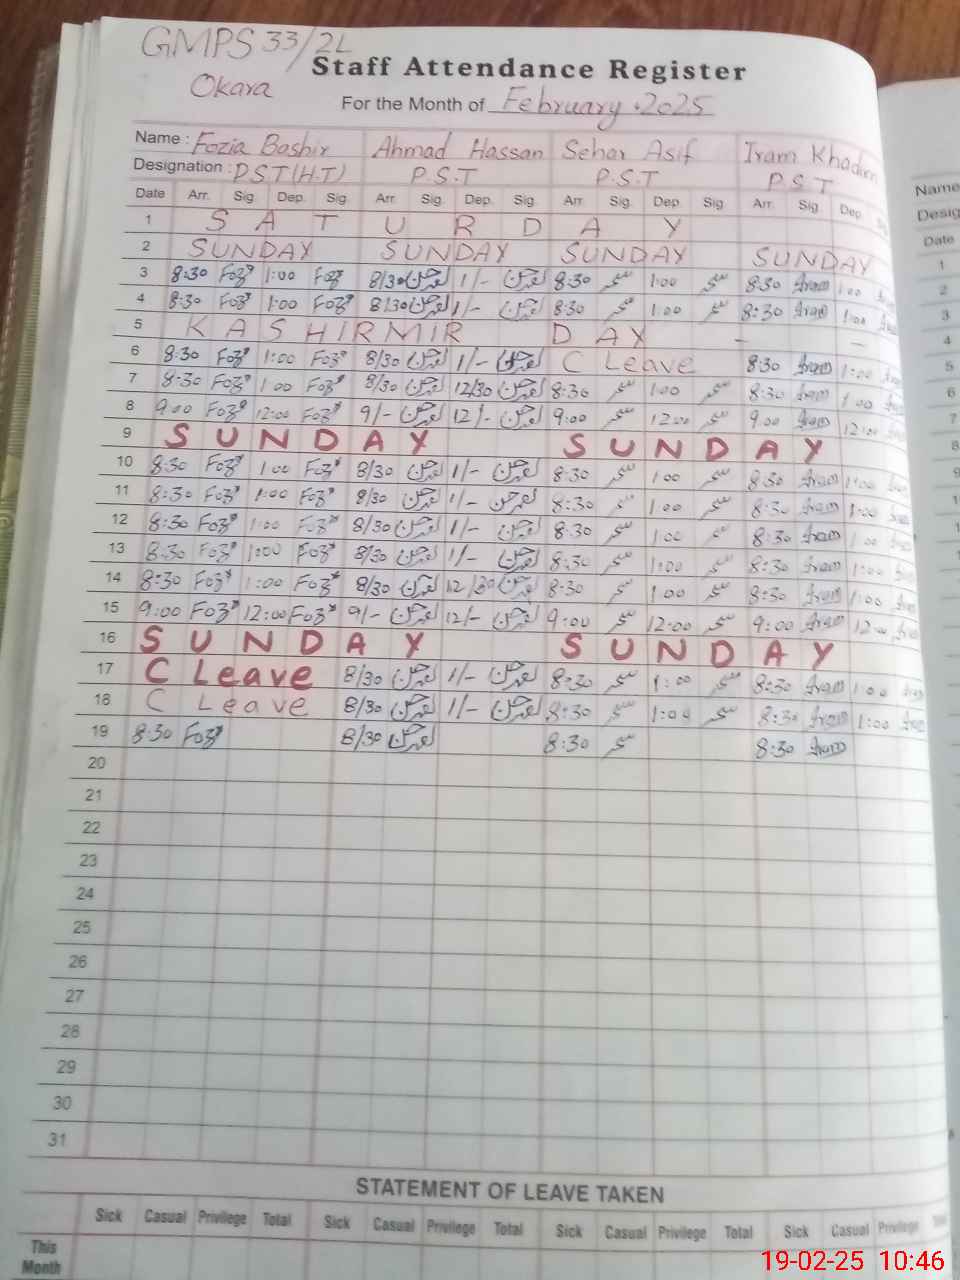 GMPS 33/2L
Okara
Staff Attendance Register
For the Month of February. 2025
Name : Fozia Bashir Ahmad Hassan Sehar Asif Iram Khadim
Designation : P.S.T (H.T) P.S.T P.S.T P.S.T
Date Arr. Sig. Dep. Sig. Arr. Sig. Dep. Sig. Arr. Sig. Dep. Sig. Arr. Sig. Dep.
1 S A T U R D A Y
2 SUNDAY SUNDAY SUNDAY SUNDAY
3 8:30 Foz 1:00 Foz 8/30 1/- 8:30 سحر 1:00 سحر 8:30 Iram 1:00
4 8:30 Foz 1:00 Foz 8/30 1/- 8:30 سحر 1:00 سحر 8:30 Iram 1:00
5 K A S H I R M I R D A Y — —
6 8:30 Foz 1:00 Foz 8/30 1/- C Leave 8:30 Iram 1:00
7 8:30 Foz 1 00 Foz 8/30 12/30 8:30 سحر 1 00 سحر 8:30 Iram 1 00
8 9:00 Foz 12:00 Foz 9/- 12/- 9:00 سحر 12:00 سحر 9:00 Iram 12:00
9 S U N D A Y S U N D A Y
10 8:30 Foz 1 00 Foz 8/30 1/- 8:30 سحر 1 00 سحر 8:30 Iram 1:00
11 8:30 Foz 1:00 Foz 8/30 1/- 8:30 سحر 1:00 سحر 8:30 Iram 1:00
12 8:30 Foz 1:00 Foz 8/30 1/- 8:30 سحر 1 00 سحر 8:30 Iram 1 00
13 8:30 Foz 1:00 Foz 8/30 1/- 8:30 سحر 1:00 سحر 8:30 Iram 1:00
14 8:30 Foz 1:00 Foz 8/30 12/30 8:30 سحر 1:00 سحر 8:30 Iram 1:00
15 9:00 Foz 12:00 Foz 9/- 12/- 9:00 سحر 12:00 سحر 9:00 Iram 12:00
16 S U N D A Y S U N D A Y
17 C Leave 8/30 1/- 8:30 سحر 1:00 سحر 8:30 Iram 1:00 Iram
18 C Leave 8/30 1/- 8:30 سحر 1:00 سحر 8:30 Iram 1:00 Iram
19 8:30 Foz 8/30 8:30 سحر 8:30 Iram
20
21
22
23
24
25
26
27
28
29
30
31
STATEMENT OF LEAVE TAKEN
Sick Casual Privilege Total Sick Casual Privilege Total Sick Casual Privilege Total Sick Casual Privilege
This Month
Name
Date
1
2
3
4
5
6
7
8
9
19-02-25 10:46